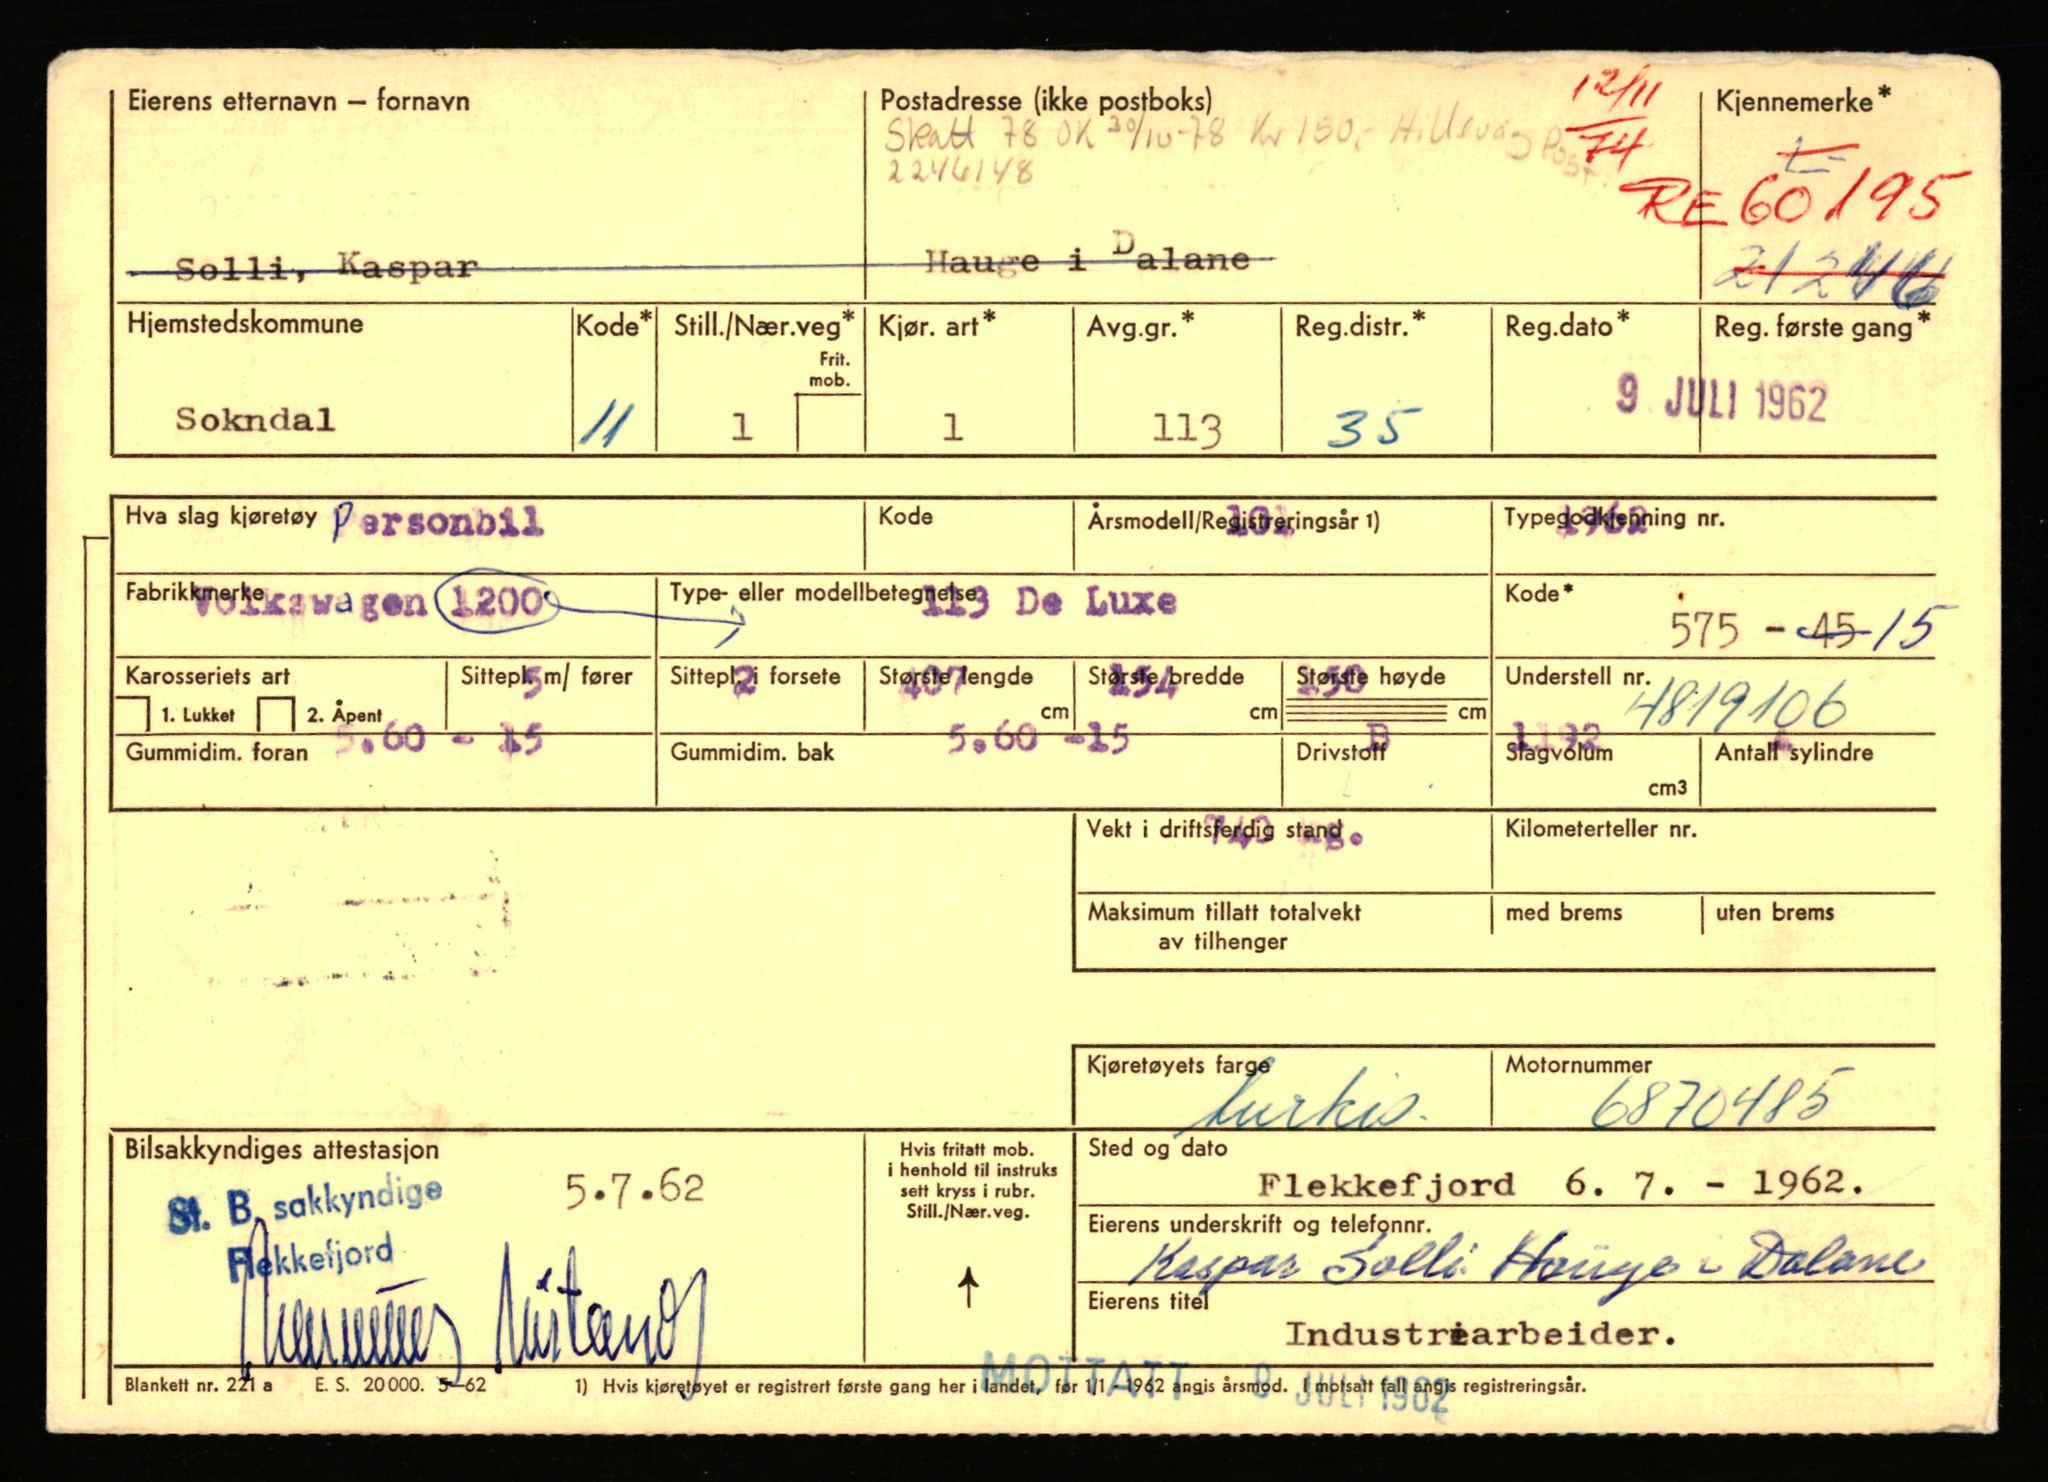 Eierens etternavn – fornavn
Postadresse (ikke postboks)
12/11
74
Kjennemerke*
Skatt 78 OK 30/10-78 Kr 150,- Hillevåg Post.
2246148
RE 60195
Solli, Kaspar
Hauge i Dalane
Hjemstedskommune
Kode*
Still./Nær.veg*
Frit.
mob.
Kjør. art*
Avg.gr.*
Reg.distr.*
Reg.dato*
Reg. første gang*
Sokndal
11
1
1
113
35
9 JULI 1962
Hva slag kjøretøy Personbil
Kode
Årsmodell/Registreringsår 1)
101
Typegodkjenning nr.
1962
Fabrikkmerke
Volkswagen 1200
Type- eller modellbetegnelse
113 De Luxe
Kode*
575 - 45 15
Karosseriets art
1. Lukket
2. Åpent
Sittepl. m/ fører
5
Sittepl. i forsete
2
Største lengde
407
cm
Største bredde
154
cm
Største høyde
150
cm
Understell nr.
4819106
Gummidim. foran
5.60 - 15
Gummidim. bak
5.60 -15
Drivstoff
B
Slagvolum
1192
cm3
Antall sylindre
Vekt i driftsferdig stand
740 kg.
Kilometerteller nr.
Maksimum tillatt totalvekt
av tilhenger
med brems
uten brems
Kjøretøyets farge
turkis.
Motornummer
6870485
Bilsakkyndiges attestasjon
St. B. sakkyndige
Flekkefjord
5.7.62
Hvis fritatt mob.
i henhold til instruks
sett kryss i rubr.
Still./Nær.veg.
Sted og dato
Flekkefjord 6. 7. - 1962.
Eierens underskrift og telefonnr.
Kaspar Solli Hauge i Dalane
Eierens titel
Industriarbeider.
MOTTATT 9 JULI 1962
Blankett nr. 221 a E. S. 20 000. 5–62
1) Hvis kjøretøyet er registrert første gang her i landet, før 1/1 –1962 angis årsmod. I motsatt fall angis registreringsår.